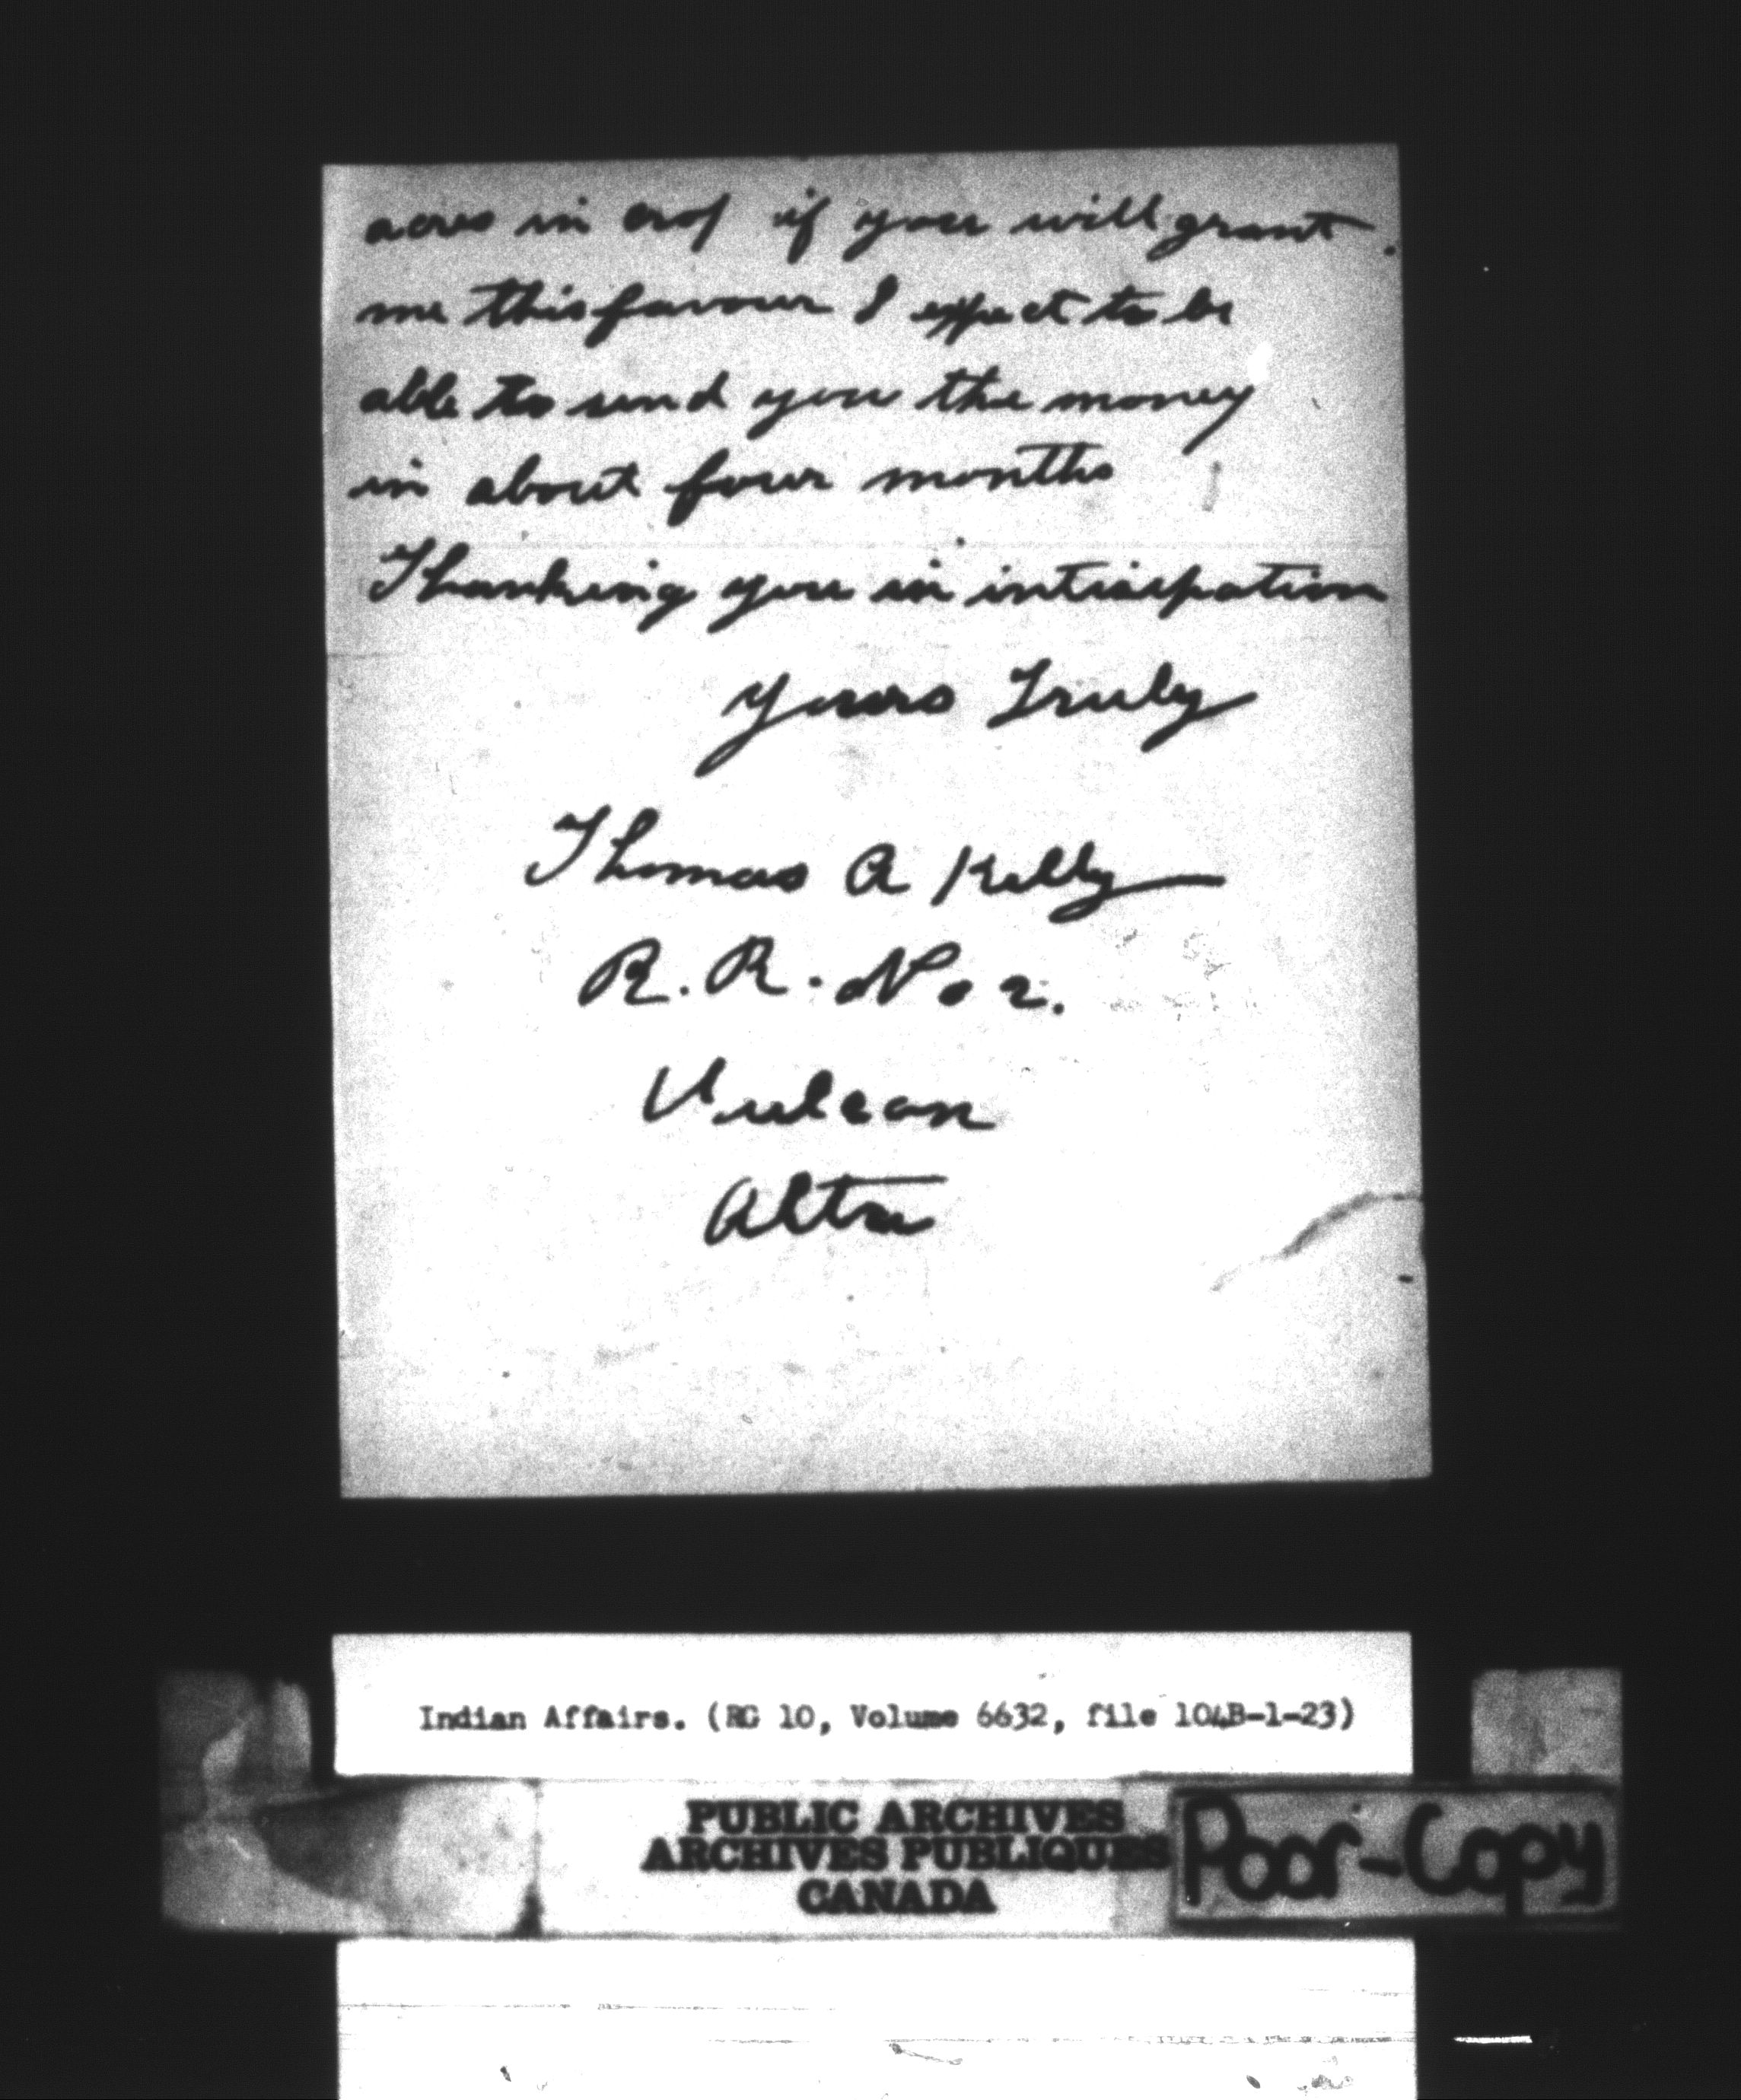 acres in crop if you will grant.
me this favour I expect to be
able to send you the money
in about four months
Thanking you in intisipation
Yours Truly
Thomas A Kelly
R. R. No 2.
Vulcan
Alta
Indian Affairs. (RG 10, Volume 6632, file 104B-1-23)
PUBLIC ARCHIVES
ARCHIVES PUBLIQUES
CANADA
Poor-Copy